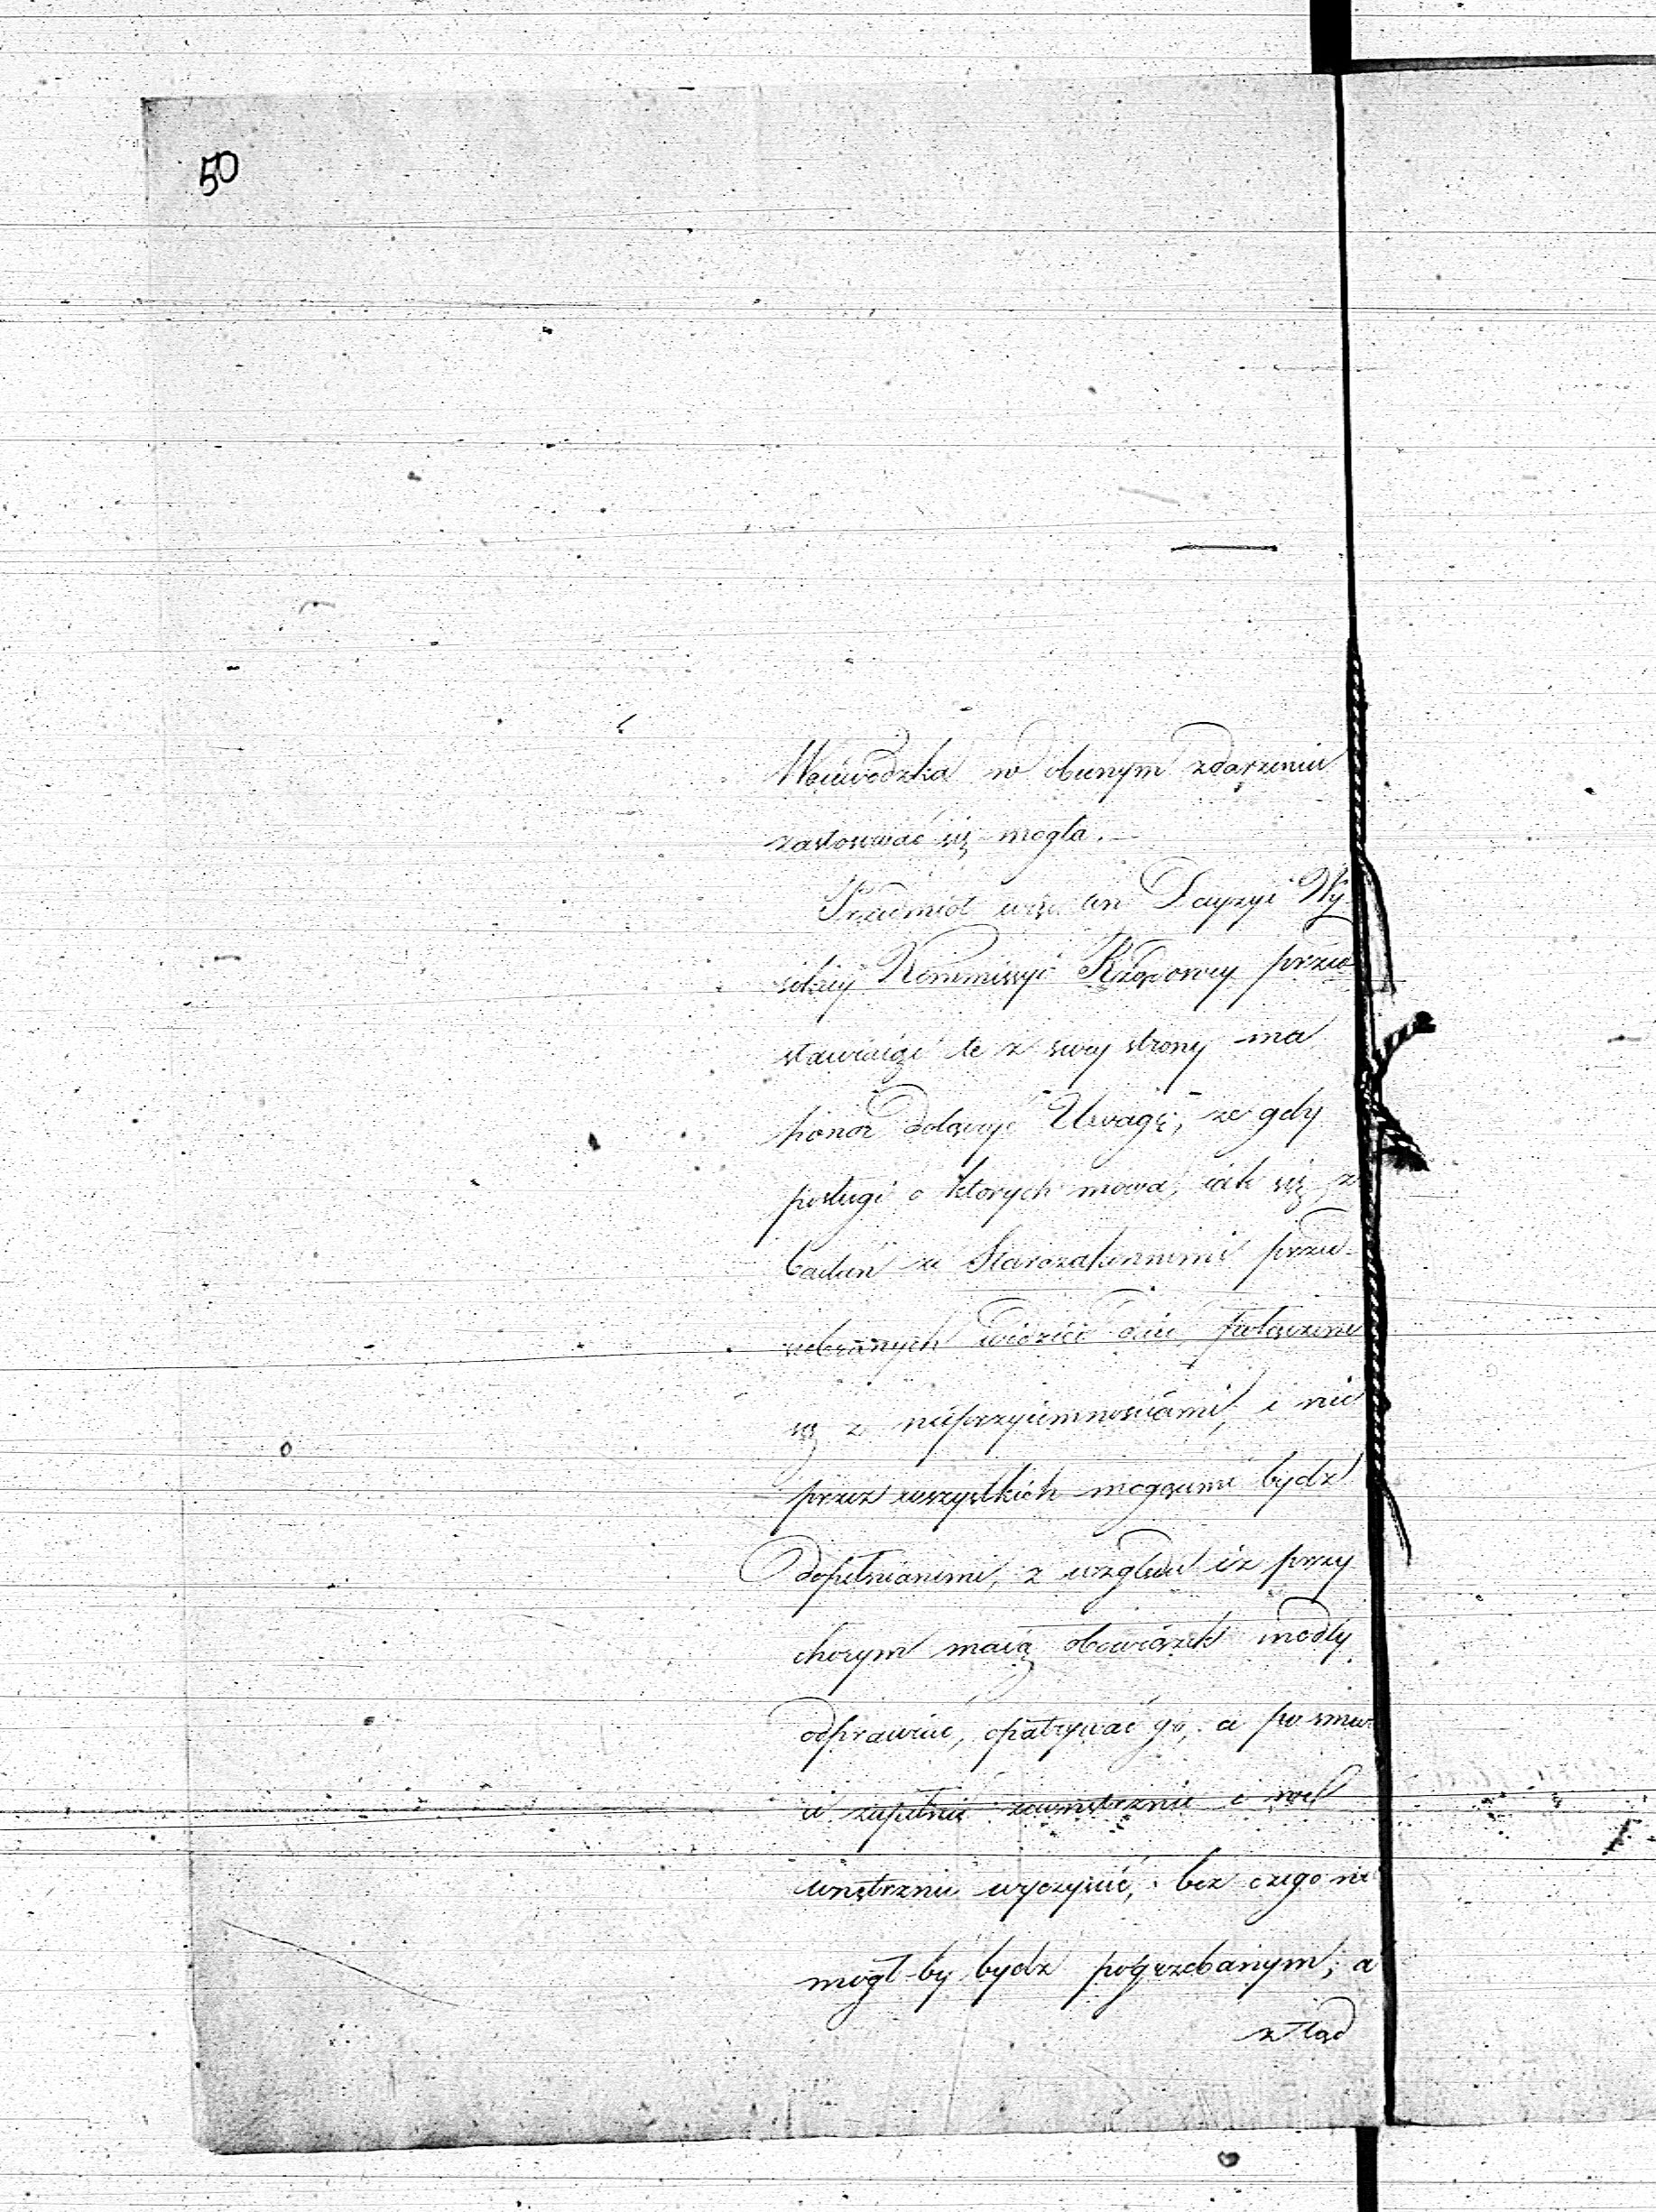 50
Wojewodzka w obecnym zdarzeniu
zastosować się mogła. —
Przedmiot więc ten Decyzyi Wy-
sokiey Kommissyi Rządowey przed
stawiając te z swey strony ma
honor dołączyć Uwagę, ze gdy
posługi o ktorych mowa, iak się z
badań ze Starozakonnemi przed-
siebranych widzieć daie, połączone
są z nieprzyiemnosciami, i nie
przez wszystkich mogącemi bydz
dopełnianemi, z względu iz przy
chorym maią obowiązek modły
odprawiać, opatrywać go, a po smier
ci zupełnie zewnętrznie i we
wnętrznie wyczyścić, bez czego nie
mogł by bydz pogrzebanym; a
z tąd